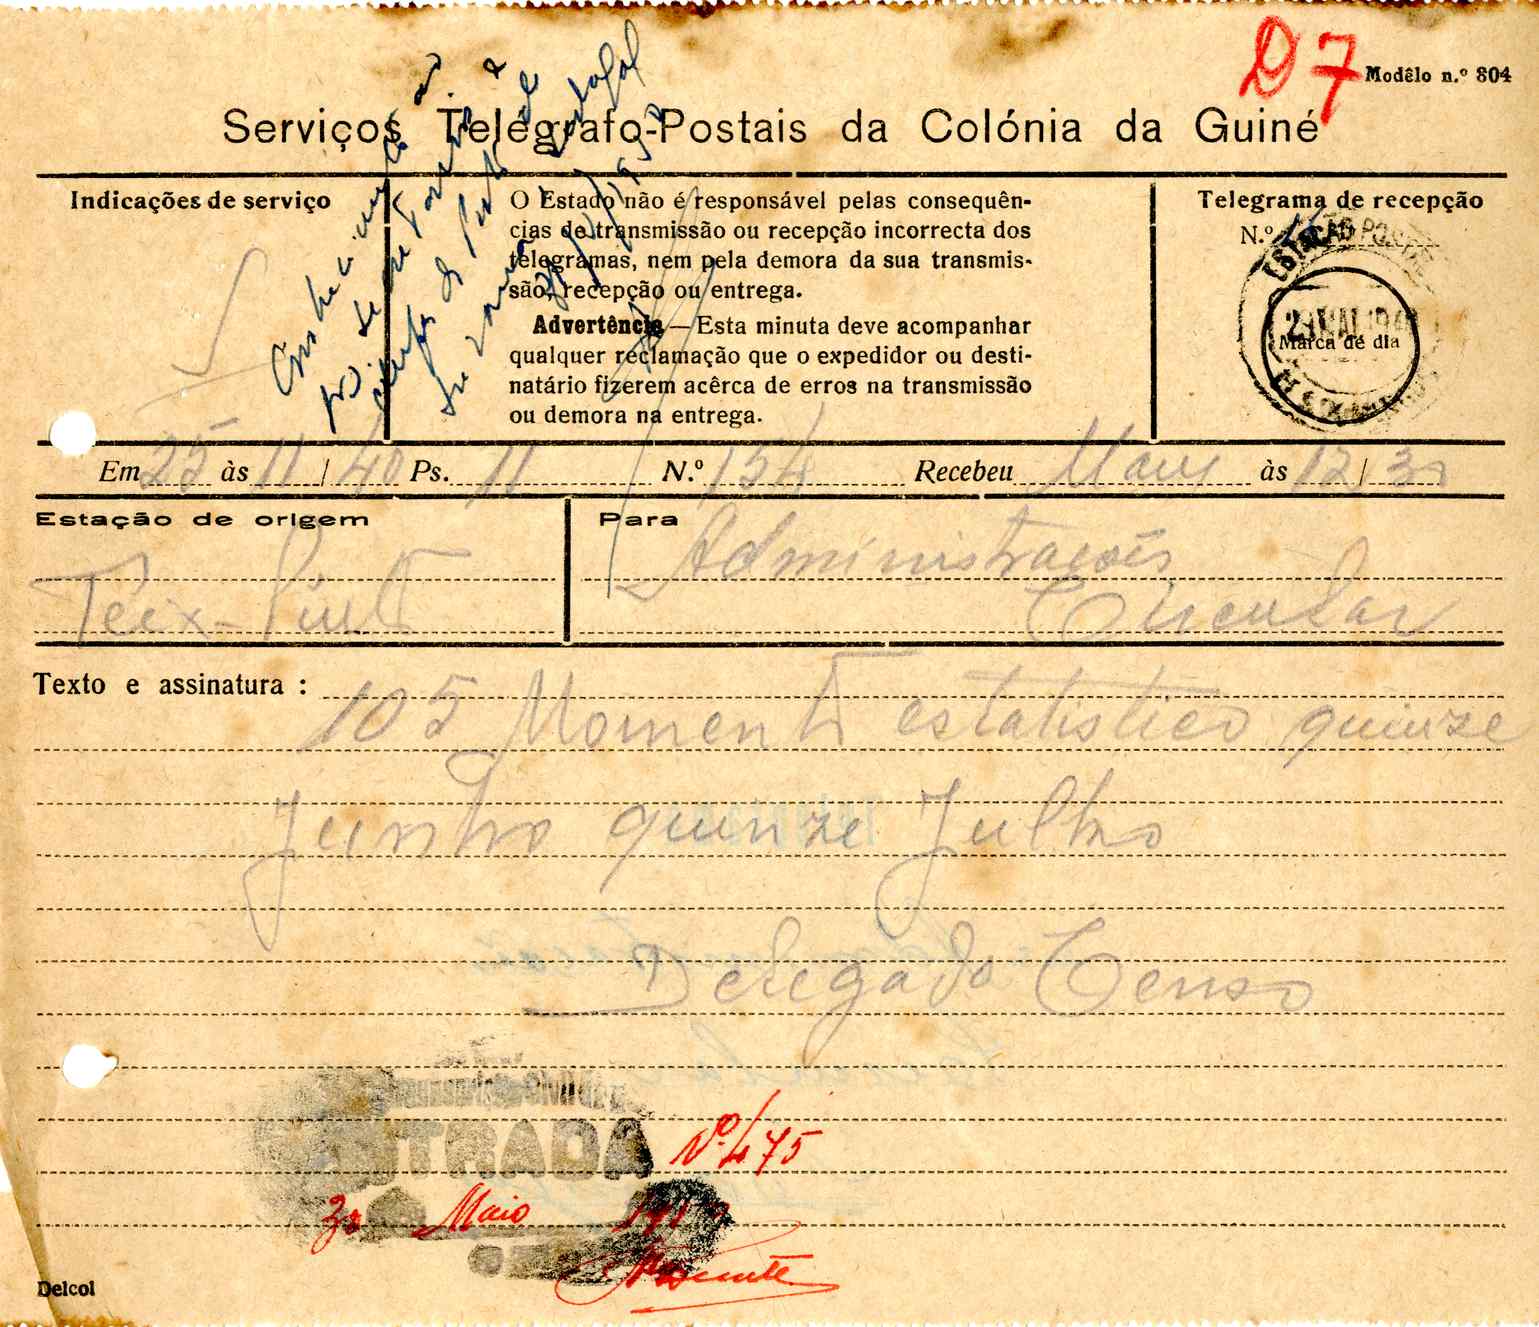 D7
Modêlo n.º 804
Serviços Telégrafo-Postais da Colónia da Guiné
Indicações de serviço
O Estado não é responsável pelas consequên-
cias de transmissão ou recepção incorrecta dos
telegramas, nem pela demora da sua transmis-
são, recepção ou entrega.
Advertência—Esta minuta deve acompanhar
qualquer reclamação que o expedidor ou desti-
natário fizerem acêrca de erros na transmissão
ou demora na entrega.
Telegrama de recepção
N.º
ESTAÇÃO
29 MAI.194
Marca de dia
Em 25 às 11 / 40 Ps. 11 N.º 154 Recebeu às 12 / 30
Estação de origem
Teix-Pinto
Para
Administrações
Circular
Texto e assinatura :
105 Momento estatistico quinze
Junho quinze Julho
Delegado Censo
ENTRADA
Nº 475
30 Maio
Delcol